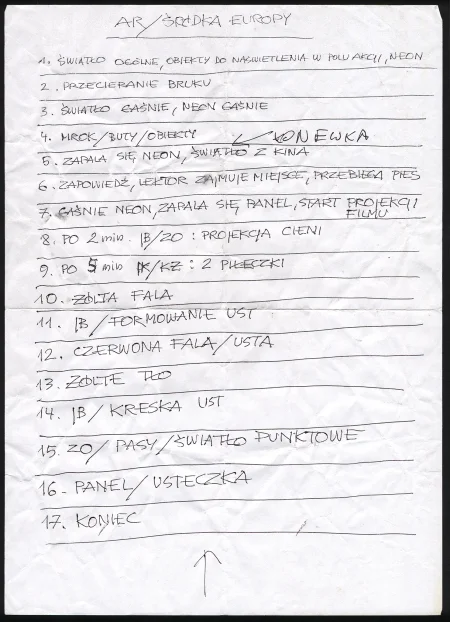 AR/ŚRODKA EUROPY
1. ŚWIATŁO OGÓLNE, OBIEKTY DO NAŚWIETLENIA W POLU AKCJI, NEON
2. PRZECIERANIE BRUKU
3. ŚWIATŁO GAŚNIE, NEON GAŚNIE
4. MROK/BUTY/OBIEKTY KONEWKA
5. ZAPALA SIĘ NEON, ŚWIATŁO Z KINA
6. ZAPOWIEDŹ, LEKTOR ZAJMUJE MIEJSCE, PRZEBIEGA PIES
7. GAŚNIE NEON, ZAPALA SIĘ PANEL, START PROJEKCJI
FILMU
8. PO 2 min. JB/ZO: PROJEKCJA CIENI
9. PO 5 min JK/KZ: 2 PIŁECZKI
10. ŻÓŁTA FALA
11. JB/FORMOWANIE UST
12. CZERWONA FALA/USTA
13. ŻÓŁTE TŁO
14. JB/KRESKA UST
15. ZO/PASY/ŚWIATŁO PUNKTOWE
16. PANEL/USTECZKA
17. KONIEC